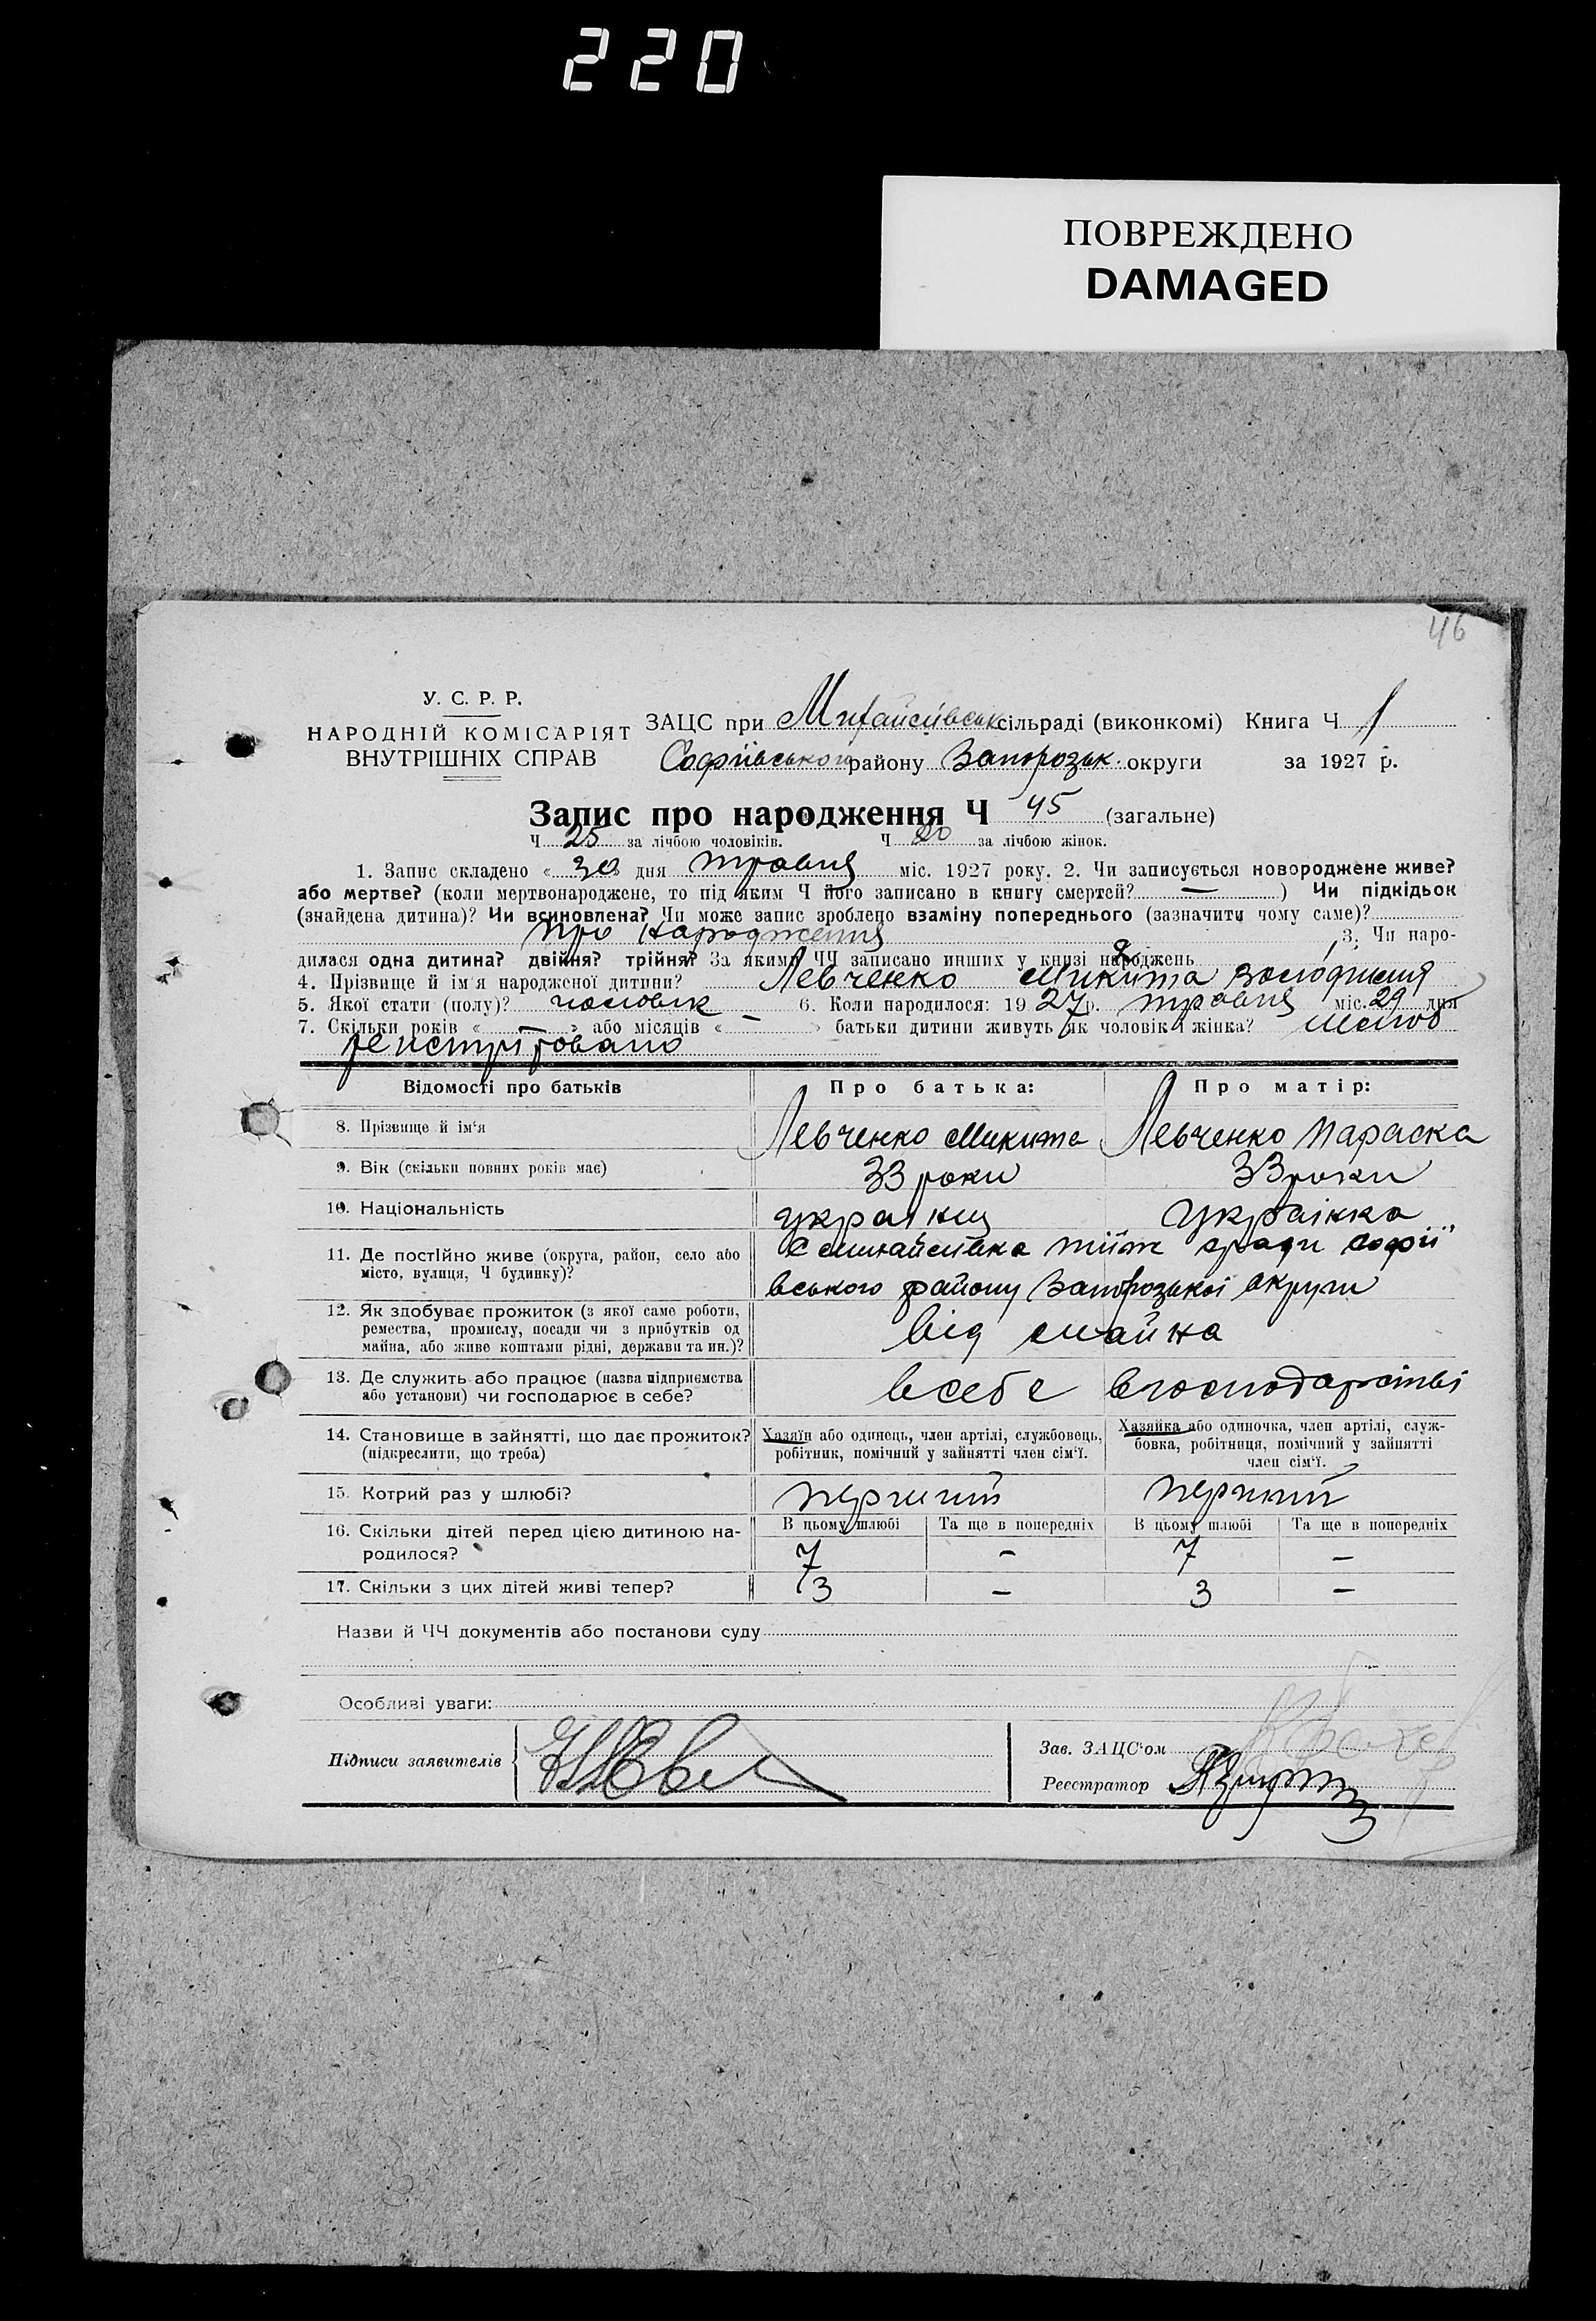 220
ПОВРЕЖДЕНО
DAMAGED
46
У. С. Р. Р.
НАРОДНІЙ КОМІСАРІЯТ
ВНУТРІШНІХ СПРАВ
ЗАЦС при сільраді (виконкомі) Книга Ч 1
Софіївського району Запорозьк. округи за 1927 р.
Запис про народження Ч 45 (загальне)
Ч 25 за лічбою чоловіків. Ч 20 за лічбою жінок.
1. Запис складено « 30 дня травня міс. 1927 року. 2. Чи записується новороджене живе?
або мертве? (коли мертвонароджене, то під яким Ч його записано в книгу смертей? — ) Чи підкідьок
(знайдена дитина)? Чи всиновлена? Чи може запис зроблено взаміну попереднього (зазначити чому саме)?
про народження 3. Чи наро-
дилася одна дитина? двійня? трійня? За якими ЧЧ записано инших у книзі народжень
4. Прізвище й ім'я народженої дитини? Левченко Микита
5. Якої стати (полу)? чоловік 6. Коли народилося: 1927р. травня міс. 29 дня
7. Скільки років « — » або місяців « — » батьки дитини живуть як чоловік і жінка? шлюб
реистріровано
Відомості про батьків Про батька: Про матір:
8. Прізвище й ім'я Левченко Микита Левченко Параска
9. Вік (скільки повних років має) 33 роки 33 роки
10. Національність українц Українка
11. Де постійно живе (округа, район, село або місто, вулиця, Ч будинку)? тіїж сради Софіі"
вського району Запорозької округи
12. Як здобуває прожиток (з якої саме роботи,
ремества, промислу, посади чи з прибутків од
майна, або живе коштами рідні, держави та ин.)? від майна
13. Де служить або працює (назва підприємства
або установи) чи господарює в себе? в себе в господарстві
14. Становище в зайнятті, що дає прожиток?
(підкреслити, що треба)
Хазяїн або одинець, член артілі, службовець,
робітник, помічний у зайнятті член сім'ї.
Хазяйка або одиночка, член артілі, служ-
бовка, робітниця, помічний у зайнятті
член сім'ї.
15. Котрий раз у шлюбі? перший перший
16. Скільки дітей перед цією дитиною на-
родилося?
В цьому шлюбі Та ще в попередніх В цьому шлюбі Та ще в попередніх
7 — 7 —
17. Скільки з цих дітей живі тепер? 3 — 3 —
Назви й ЧЧ документів або постанови суду
Особливі уваги:
Підписи заявителів
Зав. ЗАЦС'ом
Реєстратор